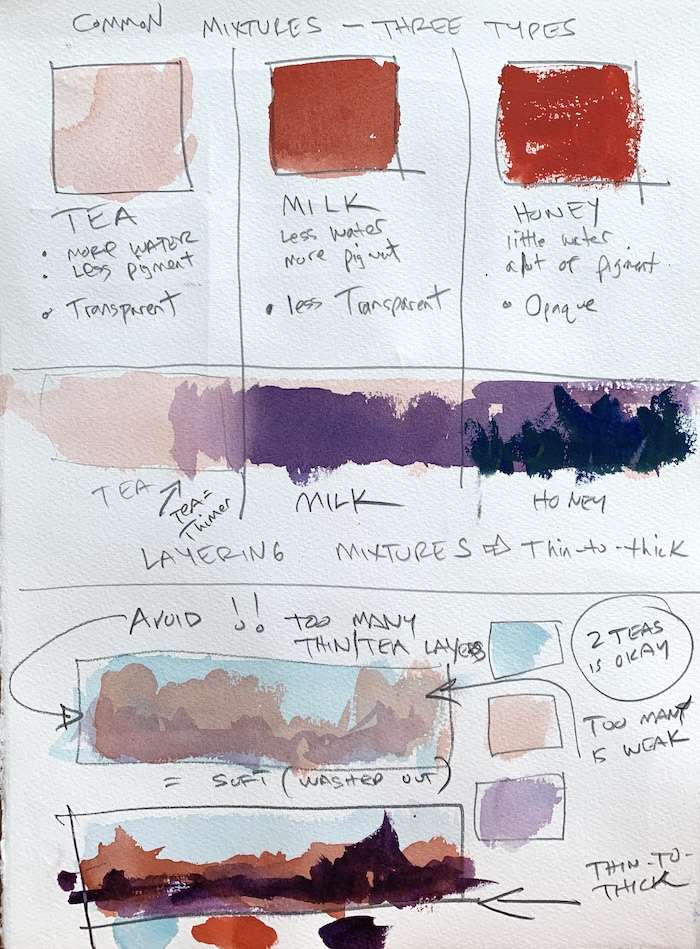 COMMON MIXTURES – THREE TYPES
TEA
• MORE WATER
• Less pigment
• Transparent
MILK
Less water
more pigment
• less Transparent
HONEY
little water
a lot of pigment
• Opaque
TEA
TEA =
Thinner
MILK
HONEY
LAYERING MIXTURES ⇨ Thin-to-thick
AVOID !! TOO MANY
THIN/TEA LAYERS
2 TEAS
IS OKAY
TOO MANY
IS WEAK
= SOFT (WASHED OUT)
THIN-TO-
THICK